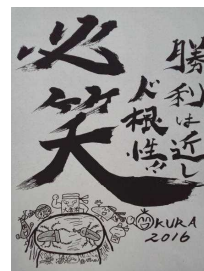 必笑
勝利は近し
ド根性!!
OKURA
2016